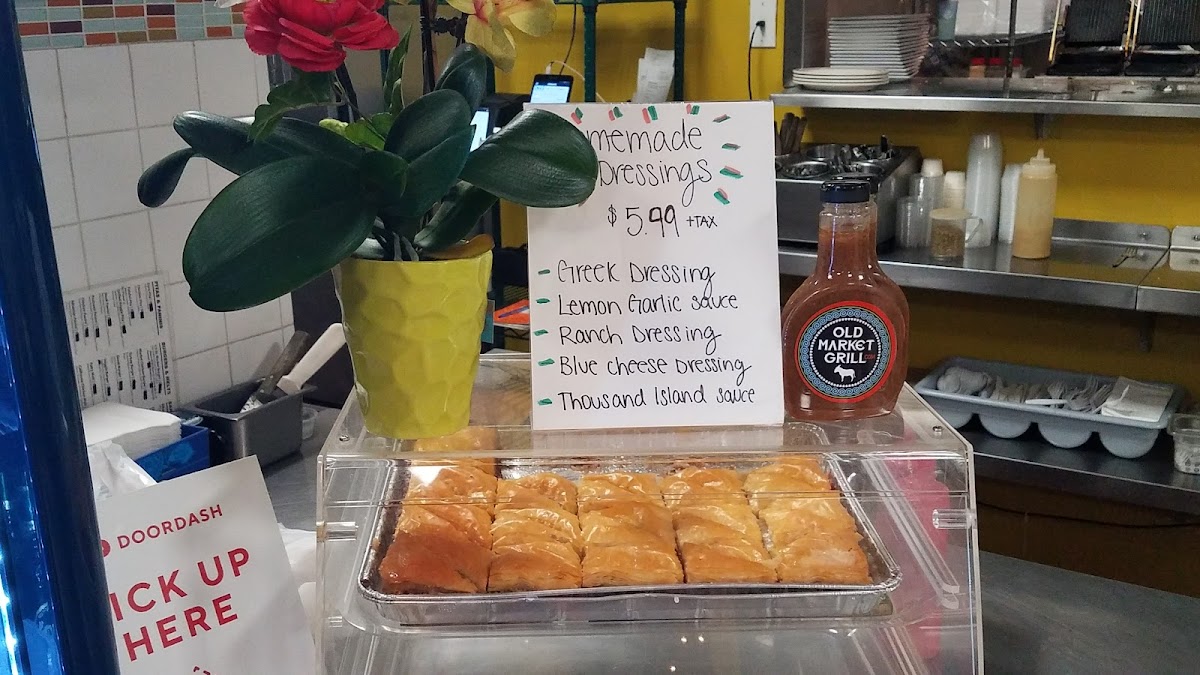 memade
Dressings
$5.99 +TAX
- Greek Dressing
- Lemon Garlic sauce
- Ranch Dressing
- Blue cheese Dressing
- Thousand Island sauce
OLD
MARKET
GRILL.COM
DOORDASH
ICK UP
HERE